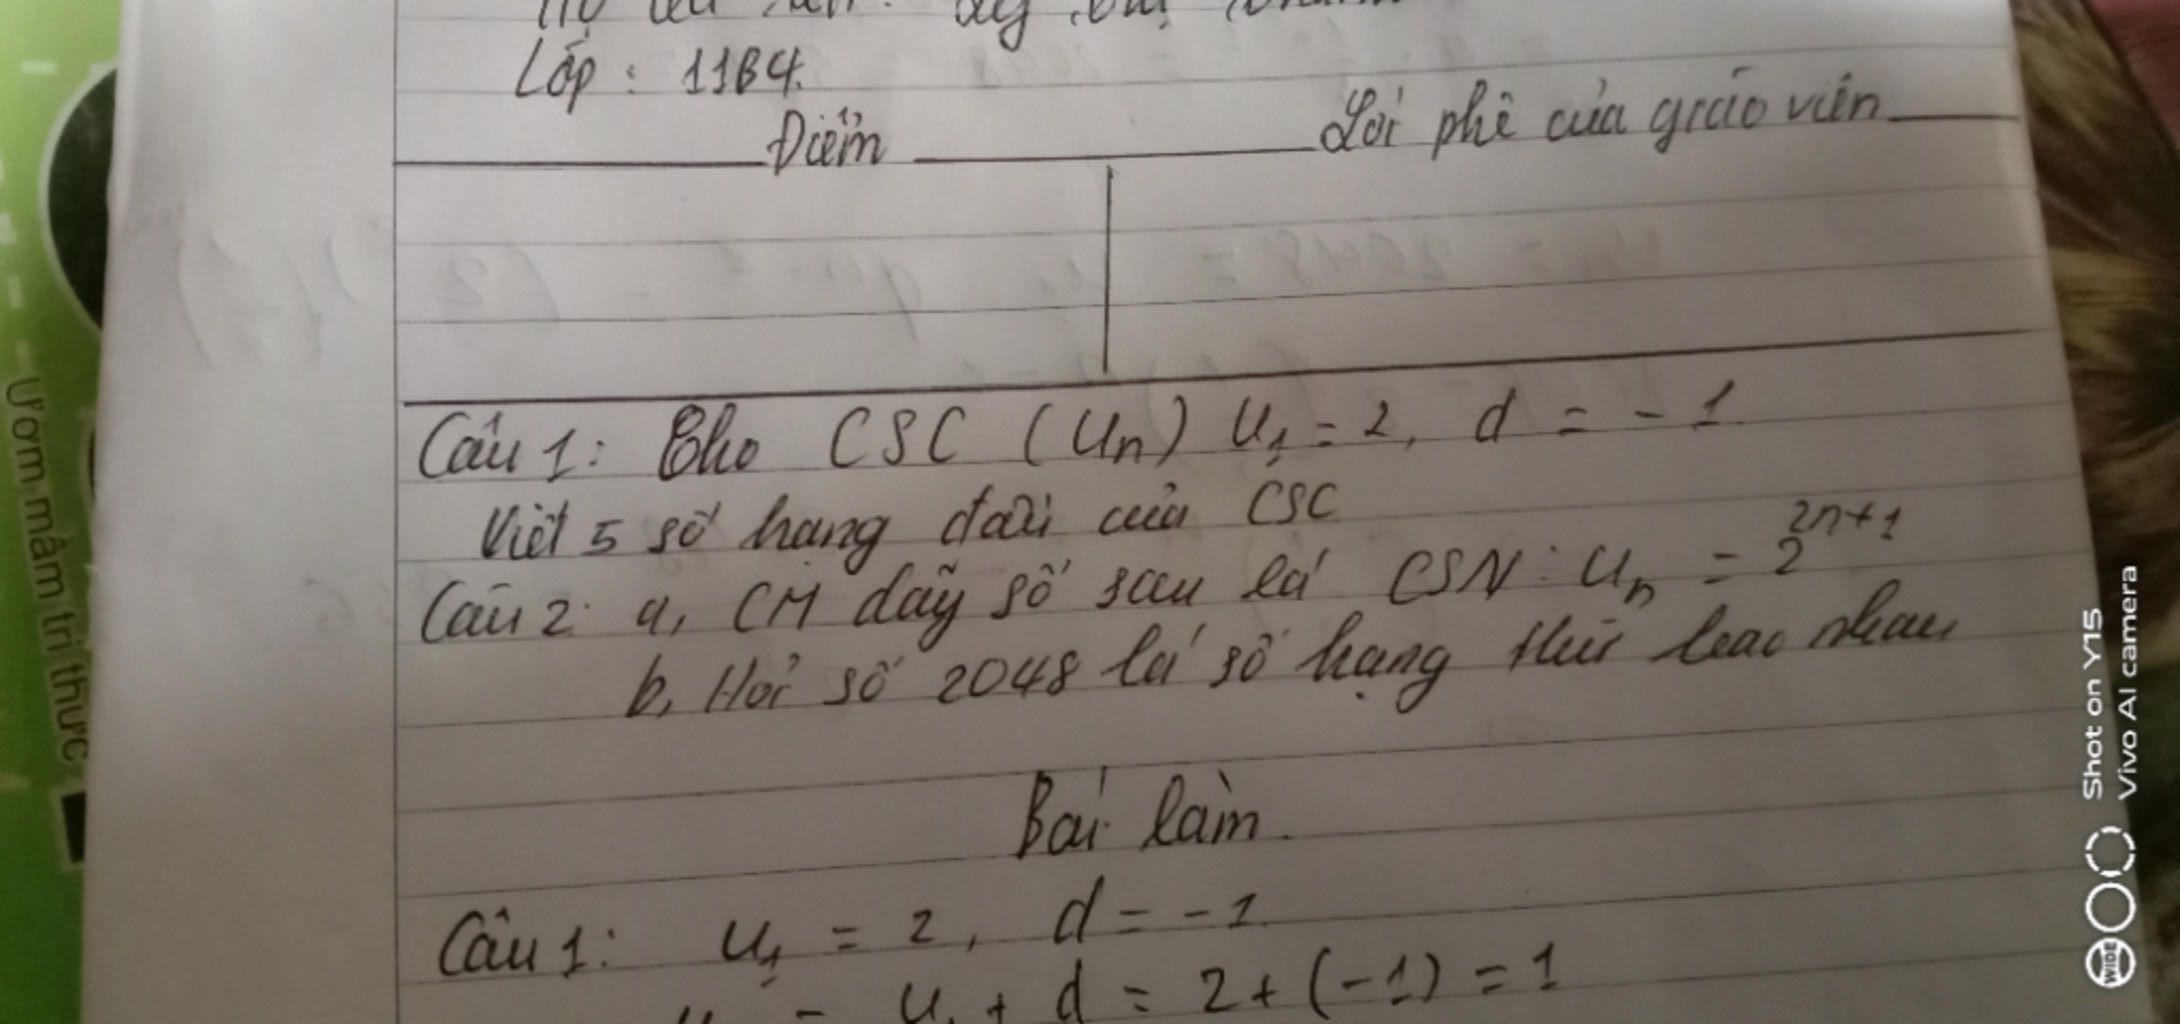 Lớp : 11B4.
Điểm Lời phê của giáo viên
Câu 1: Cho CSC (Un) U1 = 2, d = -1
Viết 5 số hạng đầu của CSC
Câu 2: a, CM dãy số sau là CSN: Un = 2^2n+1
b, Hỏi số 2048 là số hạng thứ bao nhau
Bài làm.
Câu 1: U1 = 2, d = -1.
+ d = 2 + (-1) = 1
Ươm mầm tri thức
Shot on Y15
Vivo AI camera
WIDE